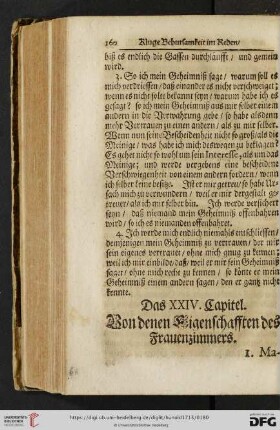 160 Kluge Behutsamkeit im Reden/
biß es endlich die Gassen durchlaufft / und gemein
wird.
3. So ich mein Geheimniß sage / warum soll es
mich verdriessen / daß einander es nicht verschweiget;
wenn es nicht solte bekannt seyn / warum habe ich es
gesagt? so ich mein Geheimniß aus mir selber einem
andern in die Verwahrung gebe / so habe alsdenn
mehr Vertrauen zu einen andern / als zu mir selber.
Wenn nun seine Bescheidenheit nicht so groß als die
Meinige / was habe ich mich deswegen zu beklagen?
Es gehet nicht so wohl um sein Interesse, als um das
Meinige; und werde vergebens eine bescheidene
Verschwiegenheit von einem andern fordern / wenn
ich selber keine besitze. Ist er mir getreu / so habe Ur-
sach mich zu verwundern / weil er mir dergestalt ge-
treuer / als ich mir selber bin. Ich werde versichert
seyn / daß niemand mein Geheimniß offenbahren
wird / so ich es niemanden offenbahre.
4. Ich werde mich endlich niemahls einschliessen /
demjenigen mein Geheimniß zu vertrauen / der mir
sein eigenes vertrauet / ohne mich gnug zu kennen;
weil ich mir einbilde / daß / weil er mir sein Geheimniß
saget / ohne mich recht zu kennen / so könte er mein
Geheimniß einem andern sagen / den er gantz nicht
kennte.
Das XXIV. Capitel.
Von denen Eigenschafften des
Frauenzimmers.
1. Ma-
https://digi.ub.uni-heidelberg.de/diglit/hunold1713/0180
© Universitätsbibliothek Heidelberg